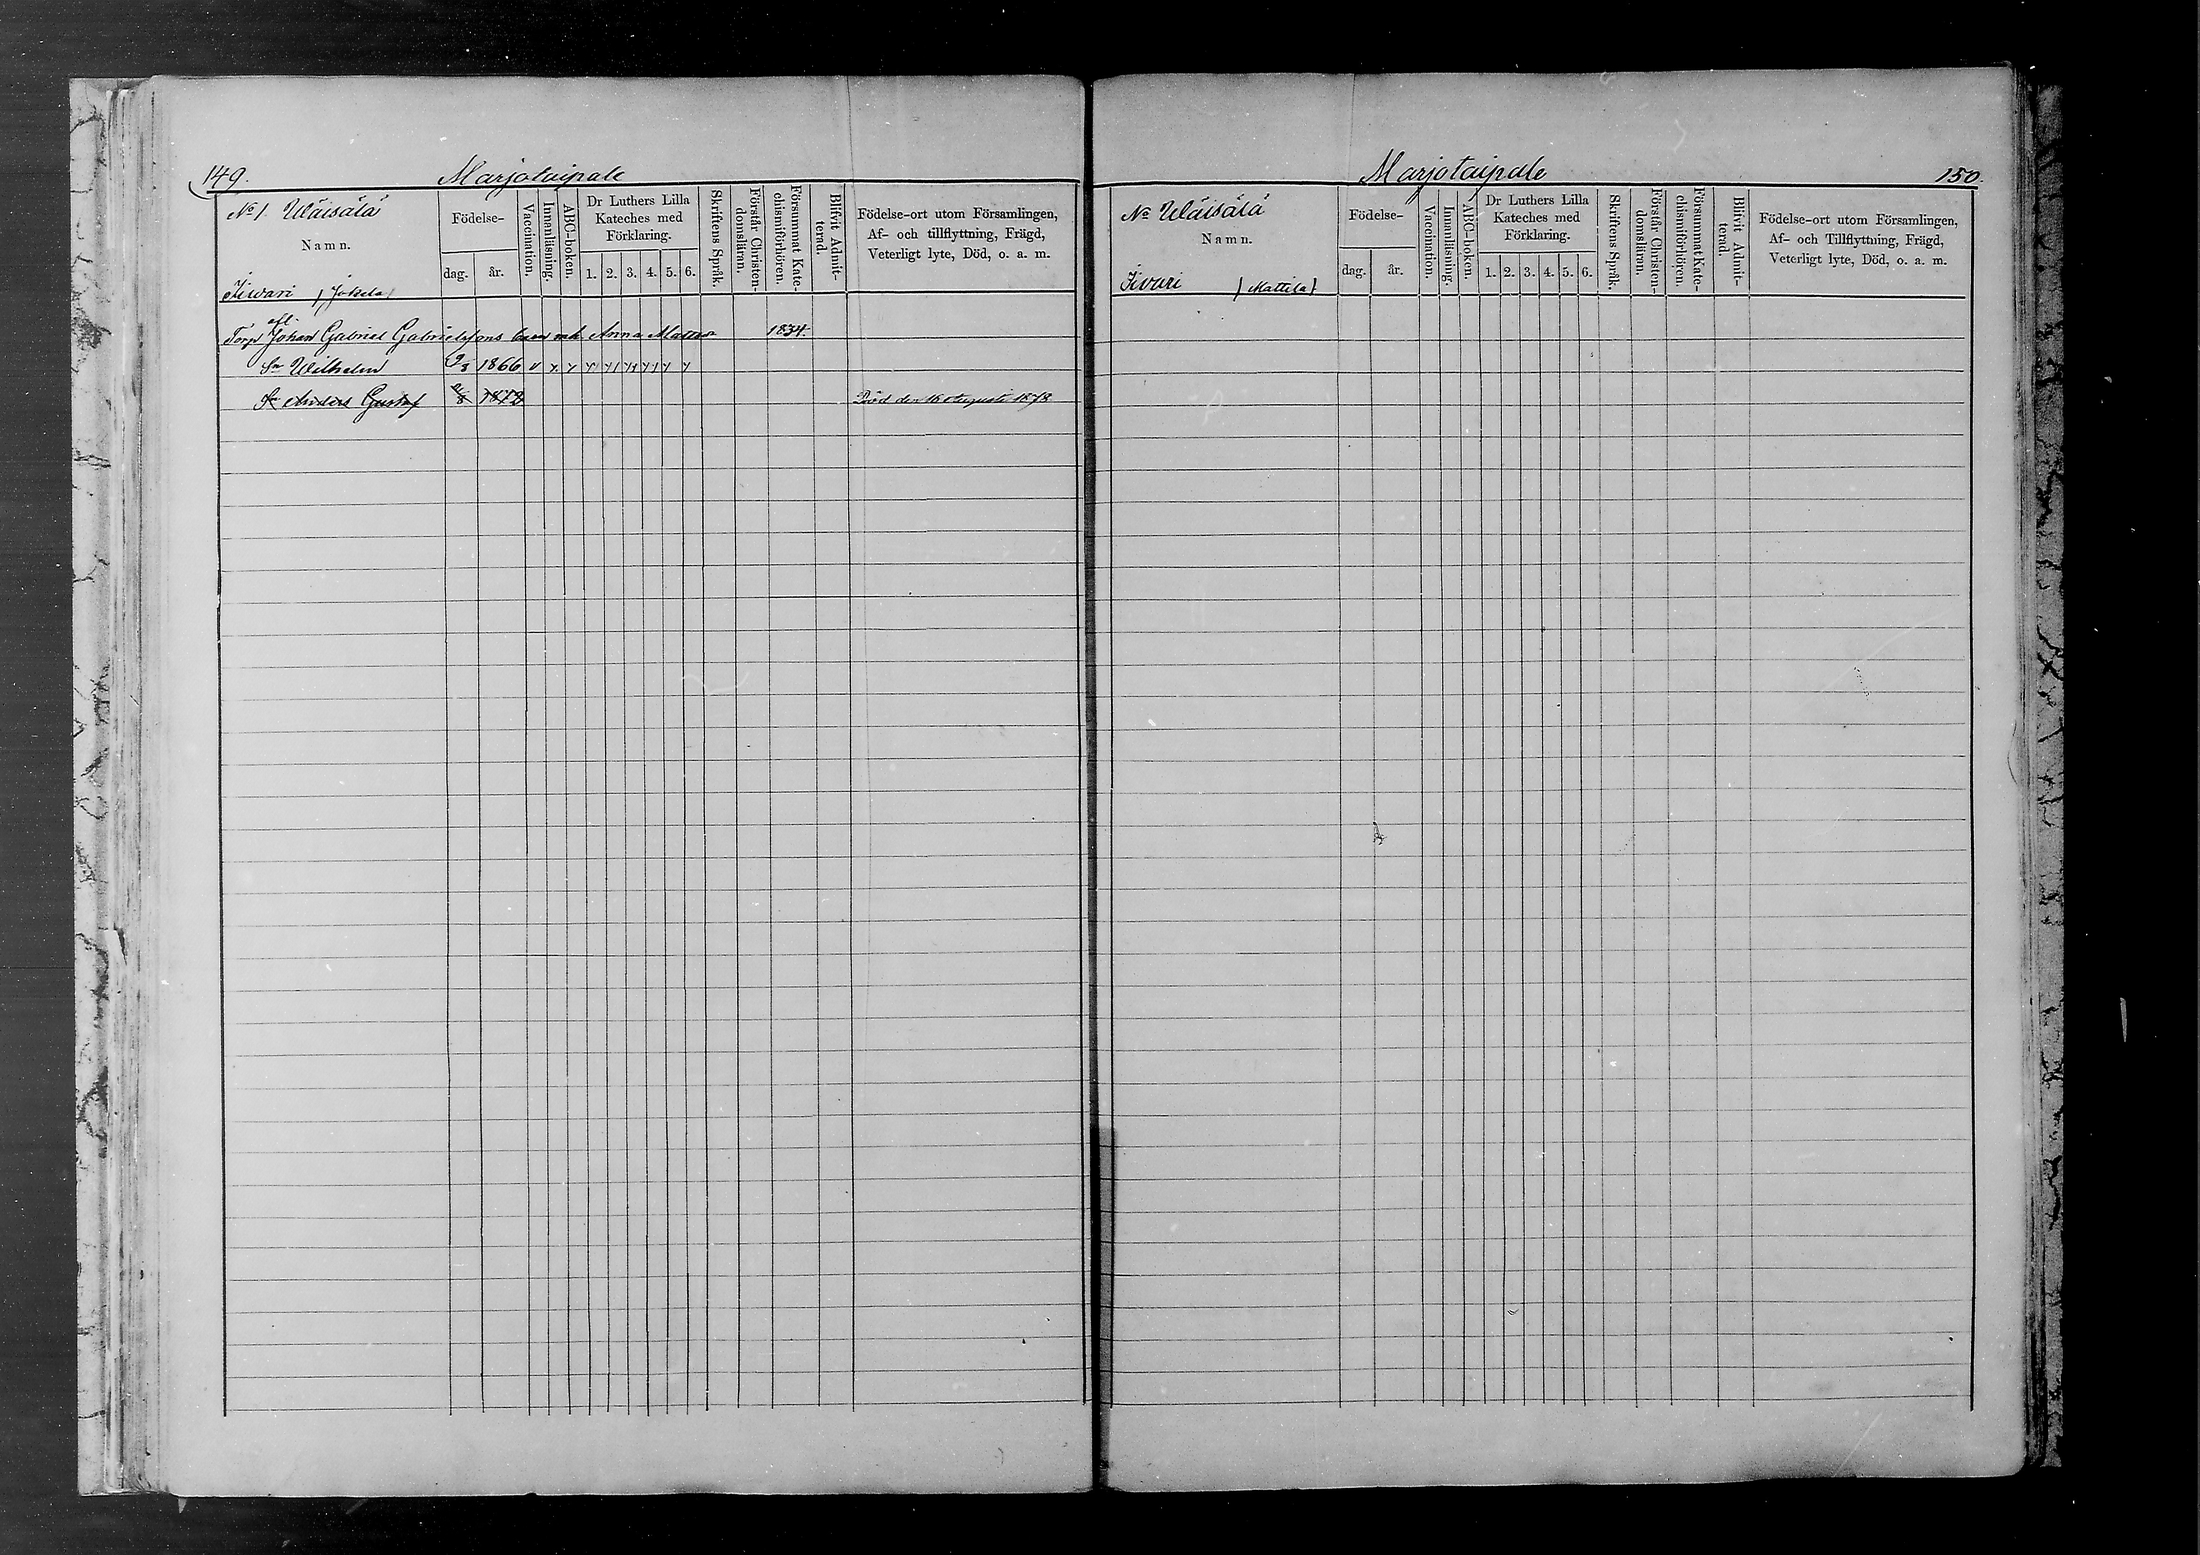 149. Marjotaipale
No 1. Wäisälä
Namn.
Iiwari (Jokela)
Födelse-
dag. år.
Vaccination.
Innanläsning.
ABC-boken.
Dr Luthers Lilla
Kateches med
Förklaring.
1. 2. 3. 4. 5. 6.
Skriftens Språk.
Förstår Christen-
domsläran.
Försummat Kate-
chismiförhören.
Blifvit Admit-
terad.
Födelse-ort utom Församlingen,
Af- och tillflyttning, Frägd,
Veterligt lyte, Död, o. a. m.
afl
Torp Johan Gabriel Gabrielssons barn Anna 1834.
Sn Wilhelm 1866
Sn Anders Gustaf 1878 Död den 16 Augusti 1878
Marjotaipale 150.
No Wäisälä
Namn.
Iivari (Mattila)
Födelse-
dag. år.
Vaccination.
Innanläsning.
ABC-boken.
Dr Luthers Lilla
Kateches med
Förklaring.
1. 2. 3. 4. 5. 6.
Skriftens Språk.
Förstår Christen-
domsläran.
Försummat Kate-
chismiförhören.
Blifvit Admit-
terad.
Födelse-ort utom Församlingen,
Af- och Tillflyttning, Frägd,
Veterligt lyte, Död, o. a. m.